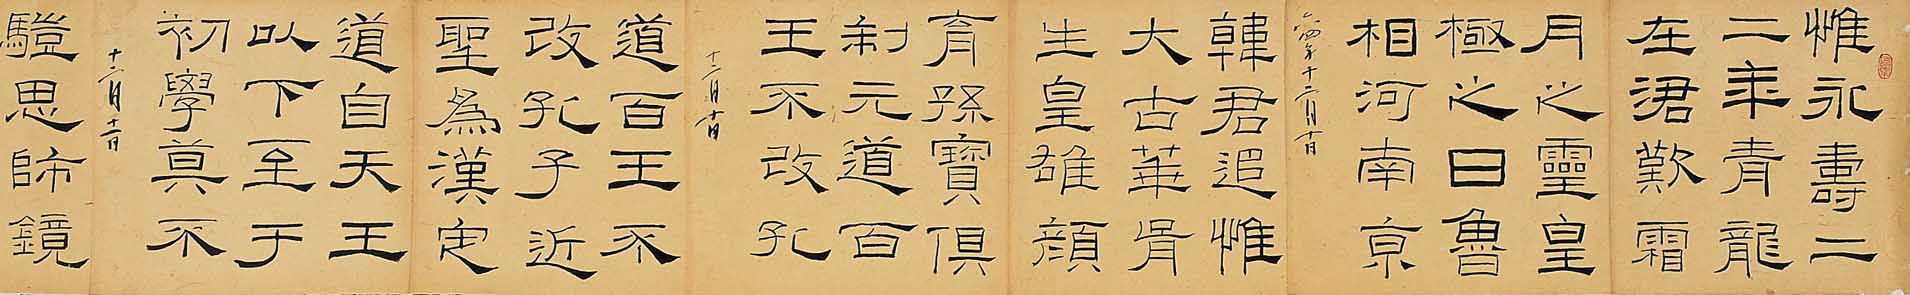 惟永壽二
二年青龍
在涒歎霜
月之靈皇
極之日魯
相河南京
六四年十二月十日
韓君追惟
大古華胥
生皇雄顏
育孫寶俱
制元道百
王不改孔
十二月十日
道百王不
改孔子近
聖為漢定
道自天王
以下至于
初學莫不
十二月十一日
驥思師鏡